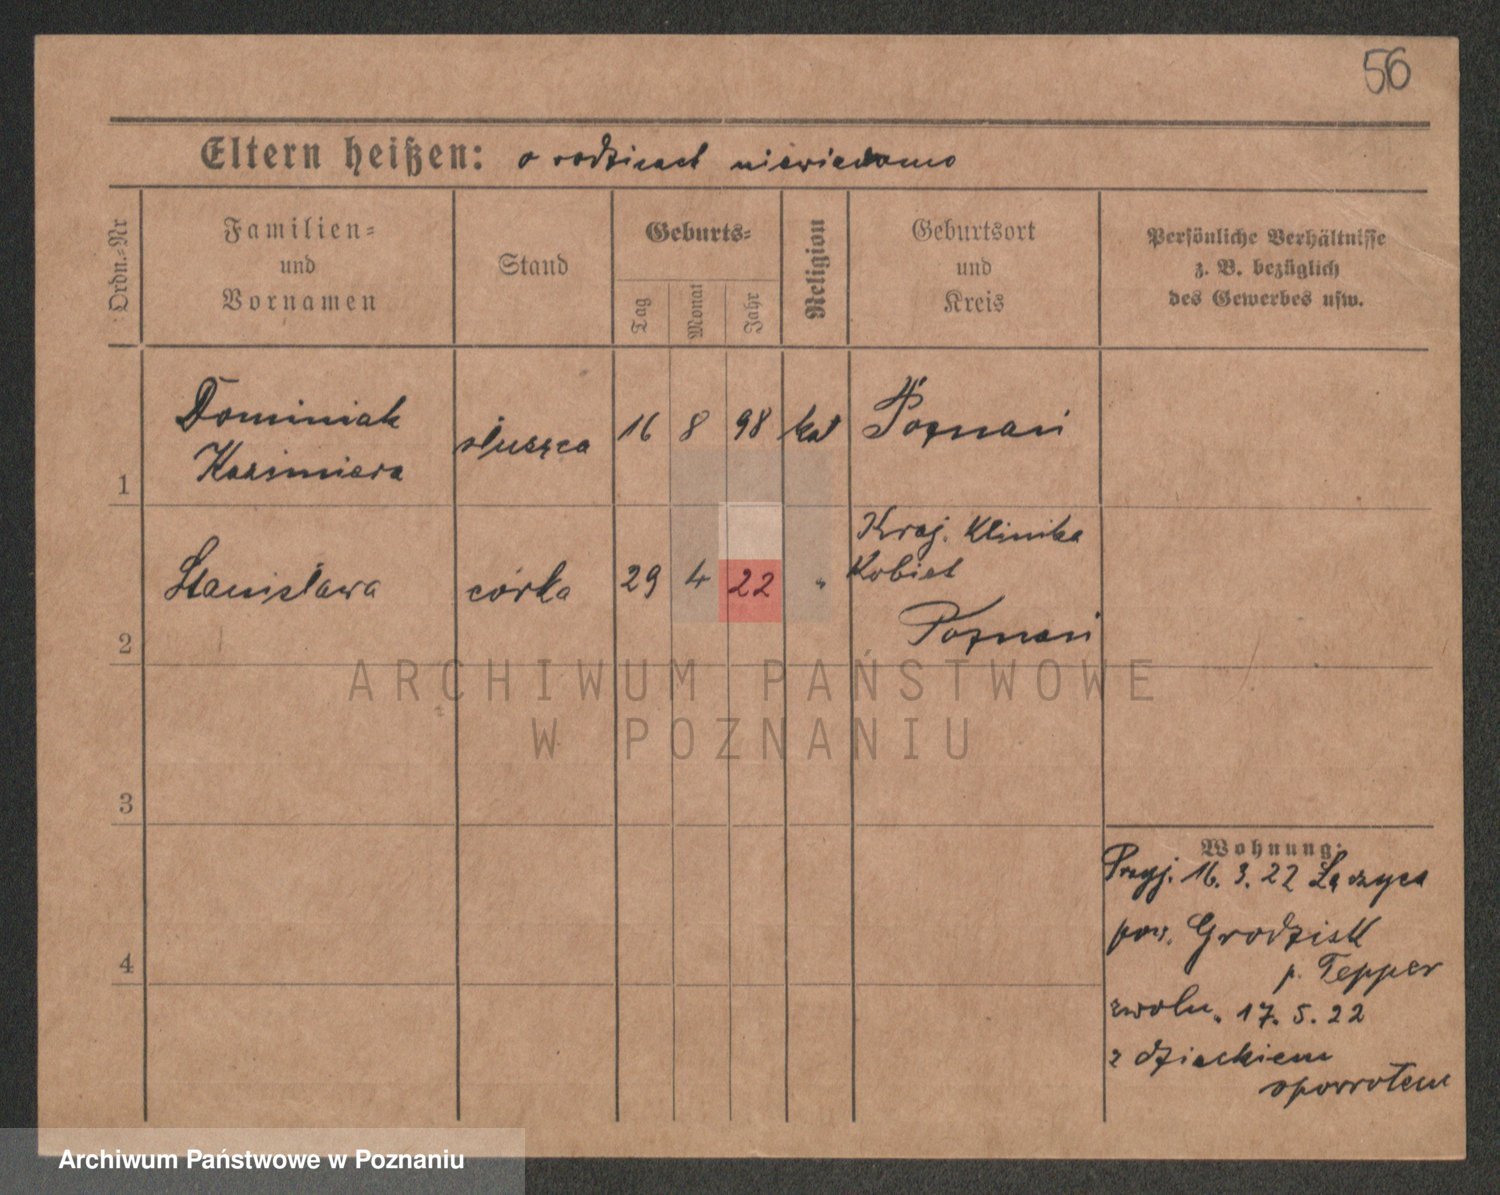 56
Eltern heißen: o rodzicach niewiadomo
Ordn.-Nr
Familien-
und
Vornamen
Stand
Geburts-
Tag
Monat
Jahr
Religion
Geburtsort
und
Kreis
Persönliche Verhältnisse
z. B. bezüglich
des Gewerbes usw.
1
Dominiak
Kazimiera
służąca
16 8 98 kat
Poznań
2
Stanisława
córka
29 4 22 "
Kraj. Klinika
Kobiet
Poznań
ARCHIWUM PAŃSTWOWE
W POZNANIU
3
4
Wohnung:
Przyj. 16. 3. 22 Łączyca
pow. Grodzisk
p. Tepper
zwoln. 17. 5. 22
z dzieckiem
spowrotem
Archiwum Państwowe w Poznaniu